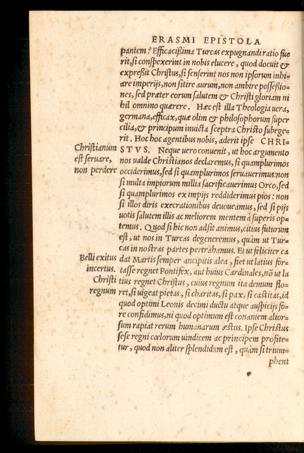 ERASMI EPISTOLA
pantem? Efficacissima Turcas expugnandi ratio fue
rit, si conspexerint in nobis elucere, quod docuit &
expressit Christus, si senserint nos non ipsorum inhi
are imperijs, non sitire aurum, non ambire possessio-
nes, sed præter eorum salutem & Christi gloriam ni
hil omnino quærere. Hæc est illa Theologia uera,
germana, efficax, quæ olim & philosophorum super
cilia, & principum inuicta sceptra Christo subege
rit. Hoc hoc agentibus nobis, aderit ipse CHRI-
Christianum STVS. Neque uero conuenit, ut hoc argumento
est seruare, nos ualde Christianos declaremus, si quamplurimos
non perdere occiderimus, sed si quamplurimos seruauerimus: non
si multa impiorum millia sacrificauerimus Orco, sed
si quamplurimos ex impijs reddiderimus pios: non
si illos diris execrationibus deuoueamus, sed si pijs
uotis salutem illis ac meliorem mentem à superis op-
temus. Quod si hic non adsit animus, citius futurum
est, ut nos in Turcas degeneremus, quàm ut Tur-
cas in nostras partes pertrahamus. Et ut feliciter ca
Belli exitus dat Martis semper ancipitis alea, fiet ut latius for-
incertus. tasse regnet Pontifex, aut huius Cardinales, nõ ut la
Christi tius regnet Christus, cuius regnum ita demum flo-
regnum ret, si uigeat pietas, si charitas, si pax, si castitas, id
quod optimi Leonis decimi ductu atque auspicijs fo-
re confidimus, ni quod optimum est conantem aliorsum
rapiat rerum humanarum æstus. Ipse Christus
sese regni cælorum uindicem ac principem profite-
tur, quod non aliter splendidum est, quàm si trium-
phent